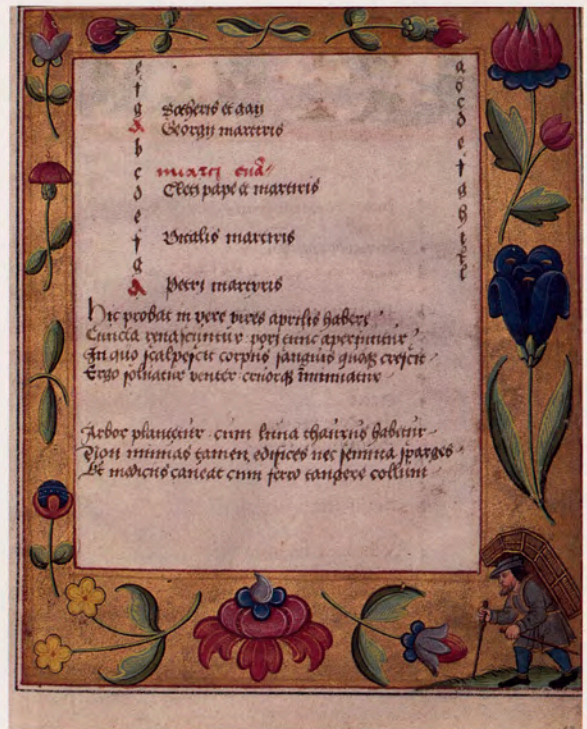 e a
f b
g Sotheris et gaii c
A Georgii martiris d
b e
c marci eua f
d Cleti pape et martiris g
e h
f Vitalis martiris
g
A Petri martiris
Hic probat in vere vires aprilis habere
Cuncta renascuntur pori tunc aperiuntur
In quo scalpescit corpus sanguis quoqz crescit
Ergo soluatur venter cruorqz minuatur
Arbor plantetur cum luna thaurus habetur
Non minuas tamen edifices nec semina sparges
Et medicus caueat cum ferro tangere collum